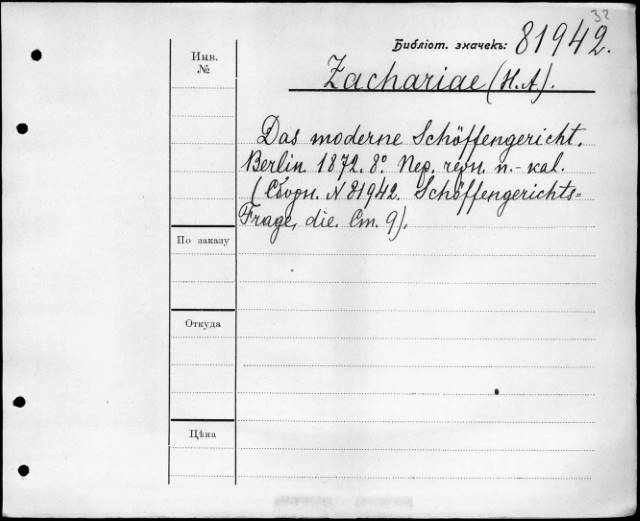 32
Библіот. значекъ: 81942.
Инв.
№
Zachariae (H. A).
Das moderne Schöffengericht.
Berlin. 1872. 8º. Пер. чрн. п.-кал.
(Сборн. N 81942. Schöffengerichts-
Frage, die. Ст. 9).
По заказу
Откуда
Цѣна